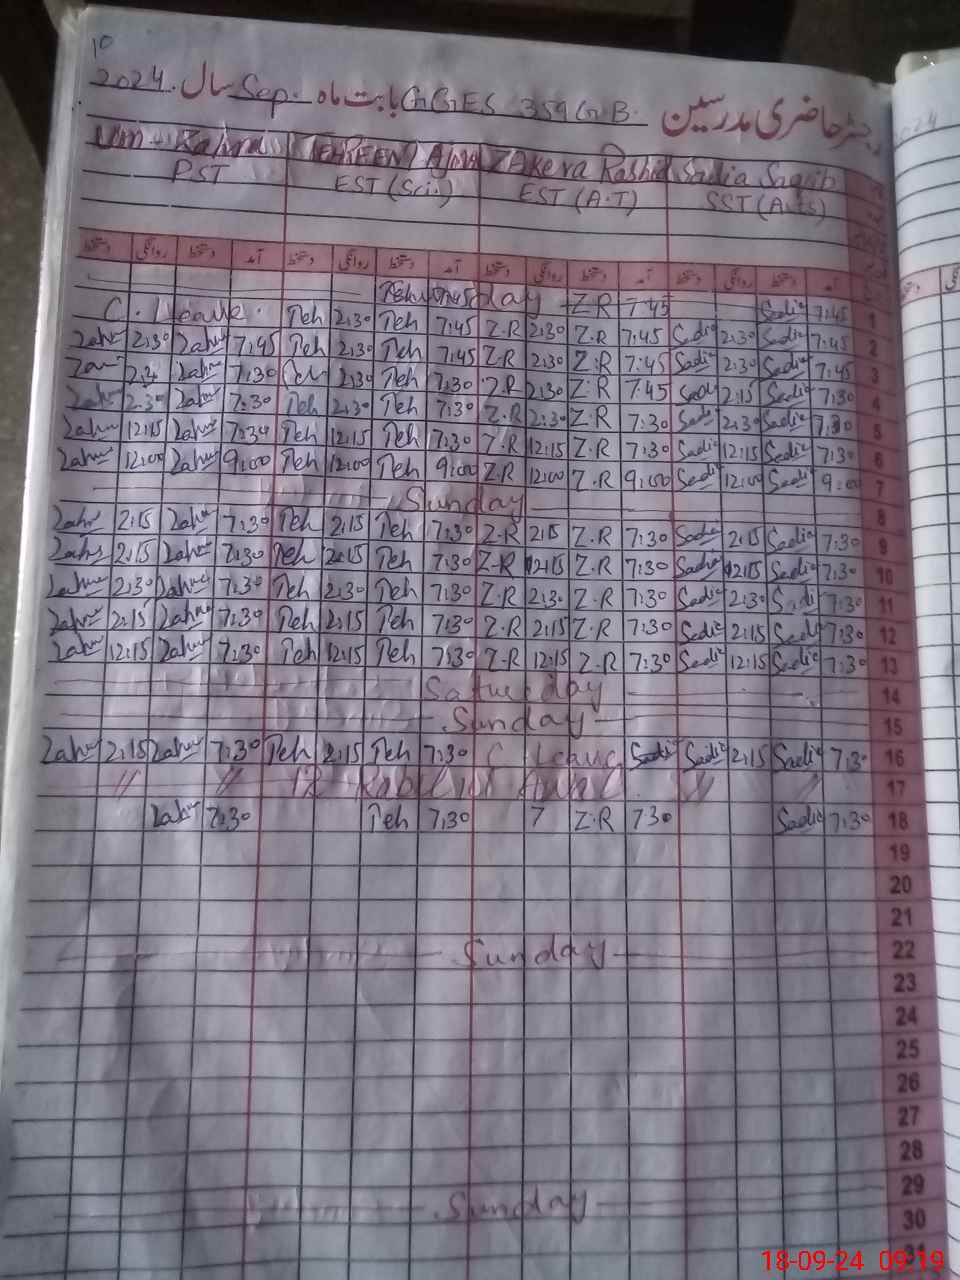 10
رجسٹر حاضری مدرسین GGES 359 G.B. بابت ماہ Sep. سال 2024.
Um-Zahra TEHREEN AJMAL Zakera Rashid Sadia Saqib
PST EST (Sci.) EST (A.T) SST (Arts)
دستخط روانگی دستخط آمد دستخط روانگی دستخط آمد دستخط روانگی دستخط آمد دستخط روانگی دستخط آمد
Teh 7:45 Z.R 7:45 Sadia 7:45 1
C. Leave. Teh 2:30 Teh 7:45 Z.R 2:30 Z.R 7:45 Sadia 2:30 Sadia 7:45 2
Zahra 2:30 Zahra 7:45 Teh 2:30 Teh 7:45 Z.R 2:30 Z.R 7:45 Sadia 2:30 Sadia 7:45 3
Zahra 7:30 Teh 2:30 Teh 7:30 Z.R 2:30 Z.R 7:45 Sadia 2:15 Sadia 7:30 4
Zahra 2:30 Zahra 7:30 Teh 2:30 Teh 7:30 Z.R 2:30 Z.R 7:30 Sadia 2:30 Sadia 7:30 5
Zahra 12:15 Zahra 7:30 Teh 12:15 Teh 7:30 Z.R 12:15 Z.R 7:30 Sadia 12:15 Sadia 7:30 6
Zahra 12:00 Zahra 9:00 Teh 12:00 Teh 9:00 Z.R 12:00 Z.R 9:00 Sadia 12:00 Sadia 9:00 7
Sunday 8
Zahra 2:15 Zahra 7:30 Teh 2:15 Teh 7:30 Z.R 2:15 Z.R 7:30 Sadia 2:15 Sadia 7:30 9
Zahra 2:15 Zahra 7:30 Teh 2:15 Teh 7:30 Z.R 2:15 Z.R 7:30 Sadia 2:15 Sadia 7:30 10
Zahra 2:30 Zahra 7:30 Teh 2:30 Teh 7:30 Z.R 2:30 Z.R 7:30 Sadia 2:30 Sadia 7:30 11
Zahra 2:15 Zahra 7:30 Teh 2:15 Teh 7:30 Z.R 2:15 Z.R 7:30 Sadia 2:15 Sadia 7:30 12
Zahra 12:15 Zahra 7:30 Teh 12:15 Teh 7:30 Z.R 12:15 Z.R 7:30 Sadia 12:15 Sadia 7:30 13
Saturday 14
Sunday 15
Zahra 2:15 Zahra 7:30 Teh 2:15 Teh 7:30 C Leave Sadia Sadia 2:15 Sadia 7:30 16
// // 12 Rabi ul Awal. // // 17
Zahra 7:30 Teh 7:30 7 Z.R 7:30 Sadia 7:30 18
19
20
21
Sunday 22
23
24
25
26
27
28
Sunday 29
30
31
18-09-24 09:19